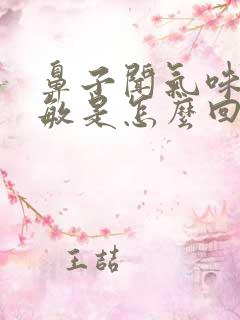 鼻子聞氣味
敏是怎麼回
王喆